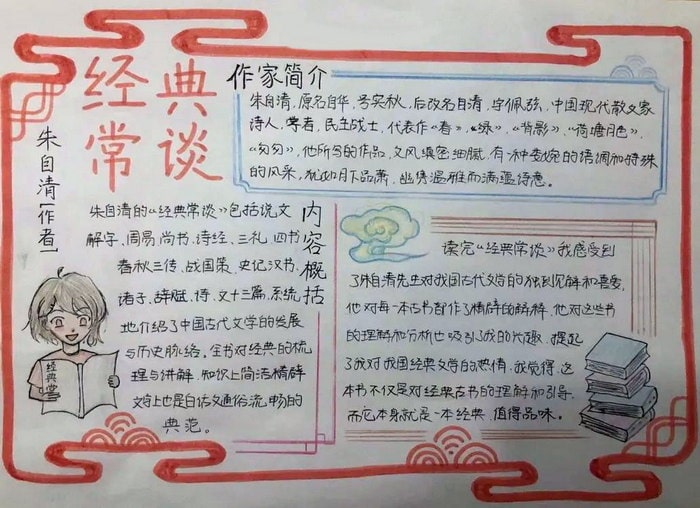 经典
常谈
朱自清[作者]
作家简介
朱自清,原名自华,号实秋,后改名自清,字佩弦,中国现代散文家
诗人,学者,民主战士,代表作《春》,《绿》,《背影》,《荷塘月色》,
《匆匆》,他所写的作品,文风缜密细腻,有一种委婉的语调和特殊
的风采,就如月下品萧,幽隽温雅而满蕴诗意。
内容概括
朱自清的《经典常谈》包括说文
解字、周易、尚书、诗经、三礼、四书
春秋三传、战国策、史记汉书、
诸子、辞赋、诗、文十三篇,系统
地介绍了中国古代文学的发展
与历史脉络。全书对经典的梳
理与讲解,知识上简洁精辟
文字上也是白话文通俗流畅的
典范。
经典常
读完《经典常谈》我感受到
了朱自清先生对我国古代文学的独到见解和喜爱,
他对每一本古书都作了精辟的解释,他对这些书
的理解和分析也吸引了我的兴趣,提起
了我对我国经典文学的热情,我觉得,这
本书不仅是对经典古书的理解和引导,
而它本身就是一本经典,值得品味。